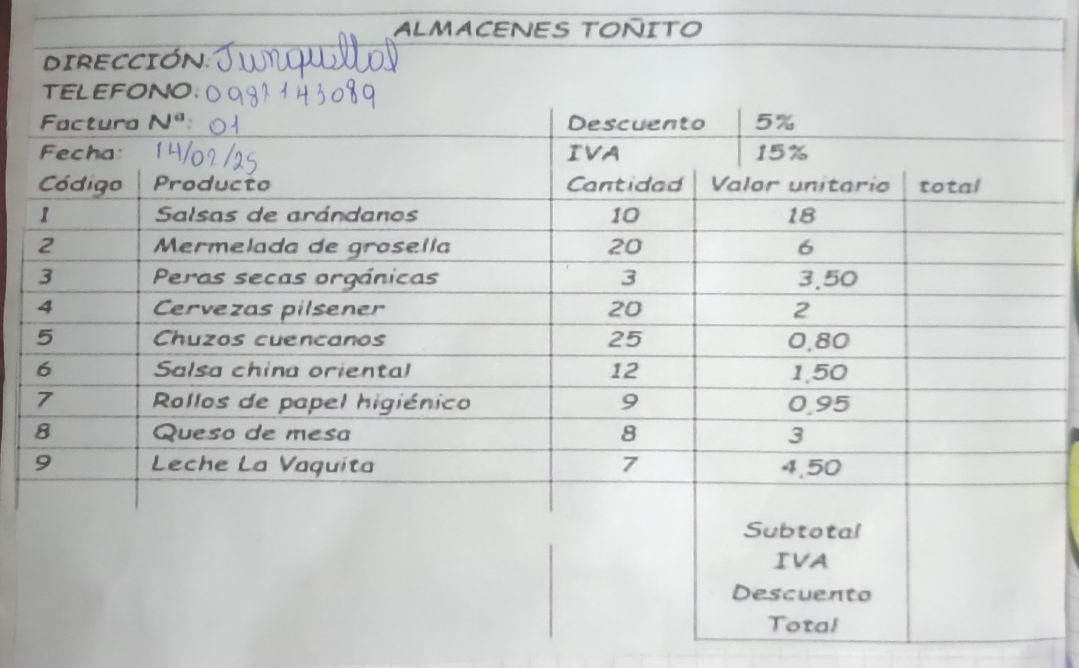 ALMACENES TOÑITO
DIRECCIÓN: Junquillal
TELEFONO: 0987143089
Factura Nª: 01 Descuento 5%
Fecha: 14/02/25 IVA 15%
Código Producto Cantidad Valor unitario total
1 Salsas de arándanos 10 18
2 Mermelada de grosella 20 6
3 Peras secas orgánicas 3 3,50
4 Cervezas pilsener 20 2
5 Chuzos cuencanos 25 0,80
6 Salsa china oriental 12 1,50
7 Rollos de papel higiénico 9 0,95
8 Queso de mesa 8 3
9 Leche La Vaquita 7 4,50
Subtotal
IVA
Descuento
Total